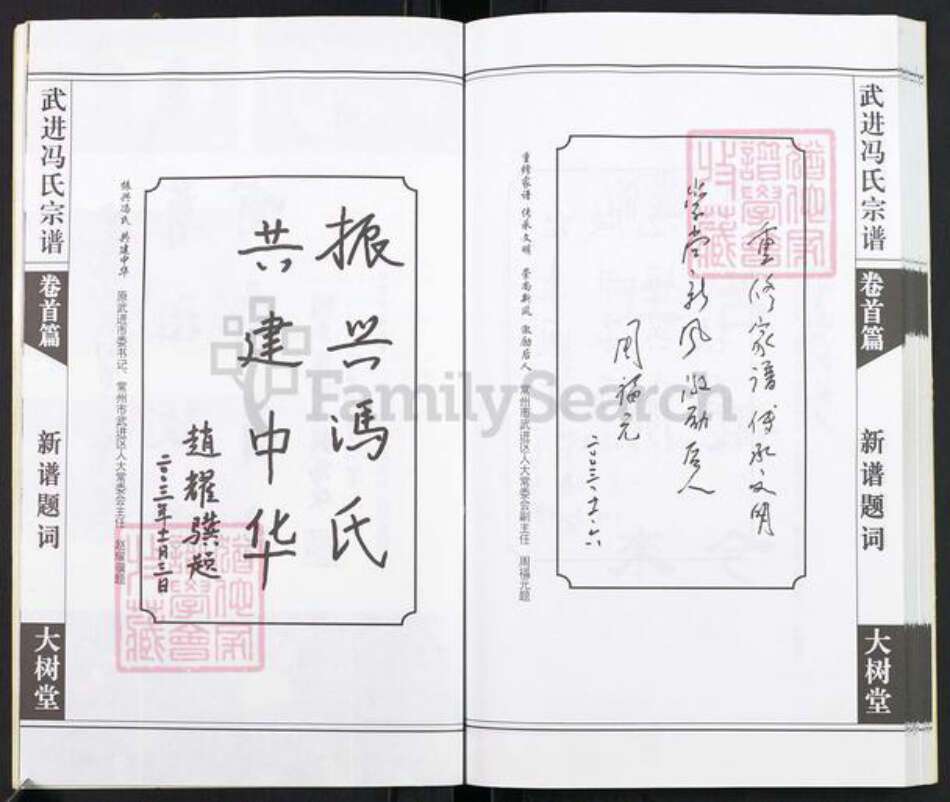 武进冯氏宗谱
卷首篇
新谱题词
大树堂
重修家谱 传承文明
崇尚新风 激励后人
周福元
二〇〇三·十一·六
重修家谱 传承文明 崇尚新风 激励后人 常州市武进区人大常委会副主任 周福元题
振兴冯氏
共建中华
赵耀骥题
二〇〇三年十一月三日
振兴冯氏 共建中华 原武进市委书记、常州市武进区人大常委会主任 赵耀骥题
武进冯氏宗谱
卷首篇
新谱题词
大树堂
FamilySearch